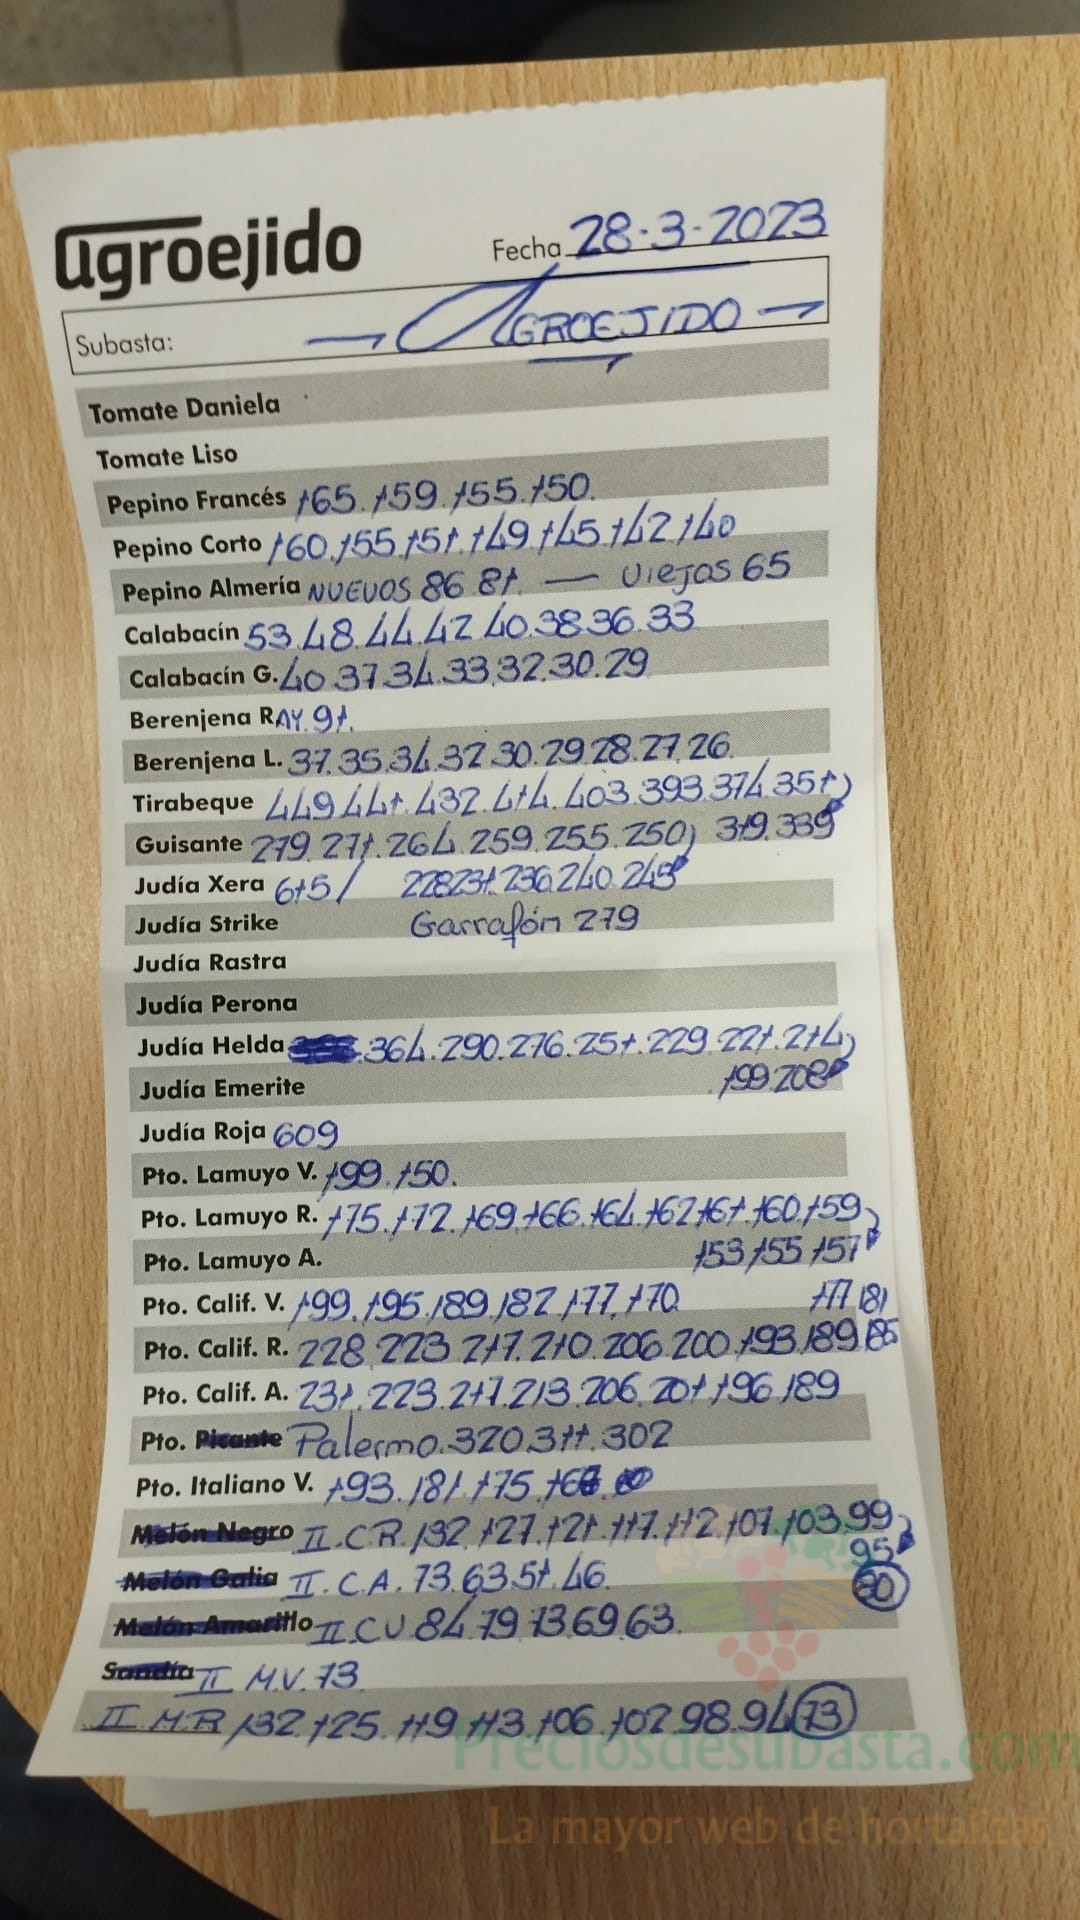 agroejido
Fecha 28-3-2023
Subasta: AGROEJIDO
Tomate Daniela
Tomate Liso
Pepino Francés 165.159.155.150.
Pepino Corto 160.155.151.149.145.142.140
Pepino Almería NUEVOS 86.81. — Viejos 65
Calabacín 53.48.44.42.40.38.36.33
Calabacín G. 40.37.34.33.32.30.29
Berenjena RAY. 91.
Berenjena L. 37.35.34.32.30.29.28.27.26.
Tirabeque 449.441.432.414.403.393.374.351
Guisante 279.271.264.259.255.250 319.339
Judía Xera 615/ 228.231.236.240.245
Judía Strike Garrafón 279
Judía Rastra
Judía Perona
Judía Helda 364.290.276.251.229.221.214
Judía Emerite 199.208
Judía Roja 609
Pto. Lamuyo V. 199.150.
Pto. Lamuyo R. 175.172.169.166.164.162.161.160.159
Pto. Lamuyo A. 153.155.157
Pto. Calif. V. 199.195.189.182.177.170. 177 181
Pto. Calif. R. 228.223.217.210.206.200.193.189.185
Pto. Calif. A. 231.223.217.213.206.201.196.189
Pto. Picante Palermo.320.311.302
Pto. Italiano V. 193.181.175.16
Melón Negro II.C.R.132.127.121.117.112.107.103.99
95
Melón Galia II.C.A.73.63.51.46. 80
Melón Amarillo II.CV 84.79.73.69.63.
Sandía II M.V.73.
II M.R 132.125.119.113.106.102.98.94 73
Preciosdesubasta.com
La mayor web de hortalizas